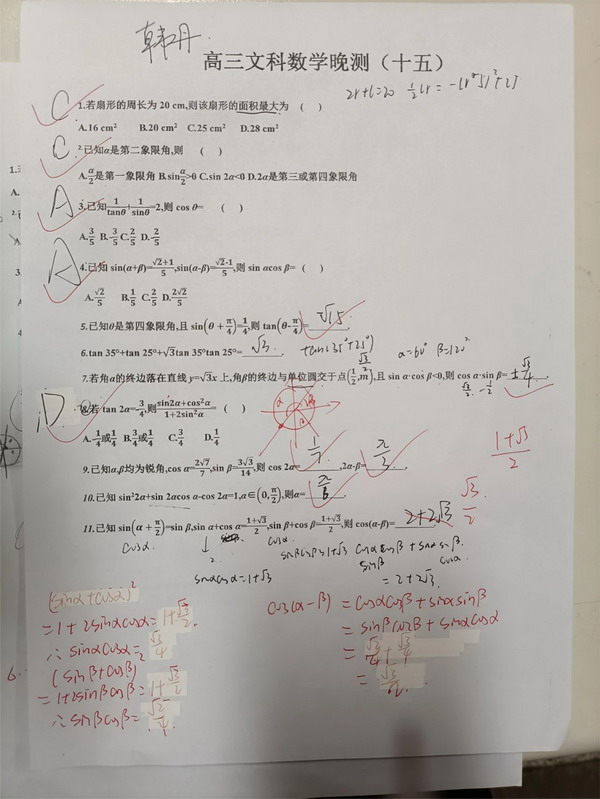 韩丹
高三文科数学晚测（十五）
2r+l=20 ½lr=
C
1.若扇形的周长为 20 cm,则该扇形的面积最大为 （ ）
A.16 cm² B.20 cm² C.25 cm² D.28 cm²
C
2.已知α是第二象限角,则 （ ）
A.α/2是第一象限角 B.sinα/2>0 C.sin 2α<0 D.2α是第三或第四象限角
A
3.已知1/tanθ+1/sinθ=2,则 cos θ= （ ）
A.3/5 B.-3/5 C.2/5 D.-2/5
A
4.已知 sin(α+β)=√2+1/5,sin(α-β)=√2-1/5,则 sin αcos β=（ ）
A.√2/5 B.1/5 C.2/5 D.2√2/5
5.已知θ是第四象限角,且 sin(θ+π/4)=1/4,则 tan(θ-π/4)= -√15.
6.tan 35°+tan 25°+√3tan 35°tan 25°= √3.
tan(35°+25°)
α=60° β=120°
7.若角α的终边落在直线 y=√3x 上,角β的终边与单位圆交于点(1/2,m),且 sin α·cos β<0,则 cos α·sin β= ±√3/4.
D
8.若 tan 2α=-3/4,则sin2α+cos²α/1+2sin²α=（ ）
A.-1/4或1/4 B.3/4或1/4 C.3/4 D.1/4
9.已知α,β均为锐角,cos α=2√7/7,sin β=3√3/14,则 cos 2α= 1/7,2α-β= π/3.
1+√3/2
10.已知 sin²2α+sin 2αcos α-cos 2α=1,α∈(0,π/2),则α= π/6.
√3/2
11.已知 sin(α+π/2)=sin β,sin α+cos α=1+√3/2,sin β+cos β=1+√3/2,则 cos(α-β)= 2+2√3
cosα
cosα
sinβcosβ=1+√3
cosαcosβ+sinαsinβ.
sinβ
cosα
sinαcosα=1+√3
=2+2√3.
(sinα+cosα)²
=1+2sinαcosα=1+√3/2
∴sinαcosα=√3/4
(sinβ+cosβ)
=1+2sinβcosβ=1+√3/2
∴sinβcosβ=√3/4
cos(α-β)=cosαcosβ+sinαsinβ
=sinβcosβ+sinαcosα
=√3/4+√3/4
=√3/2.
6.